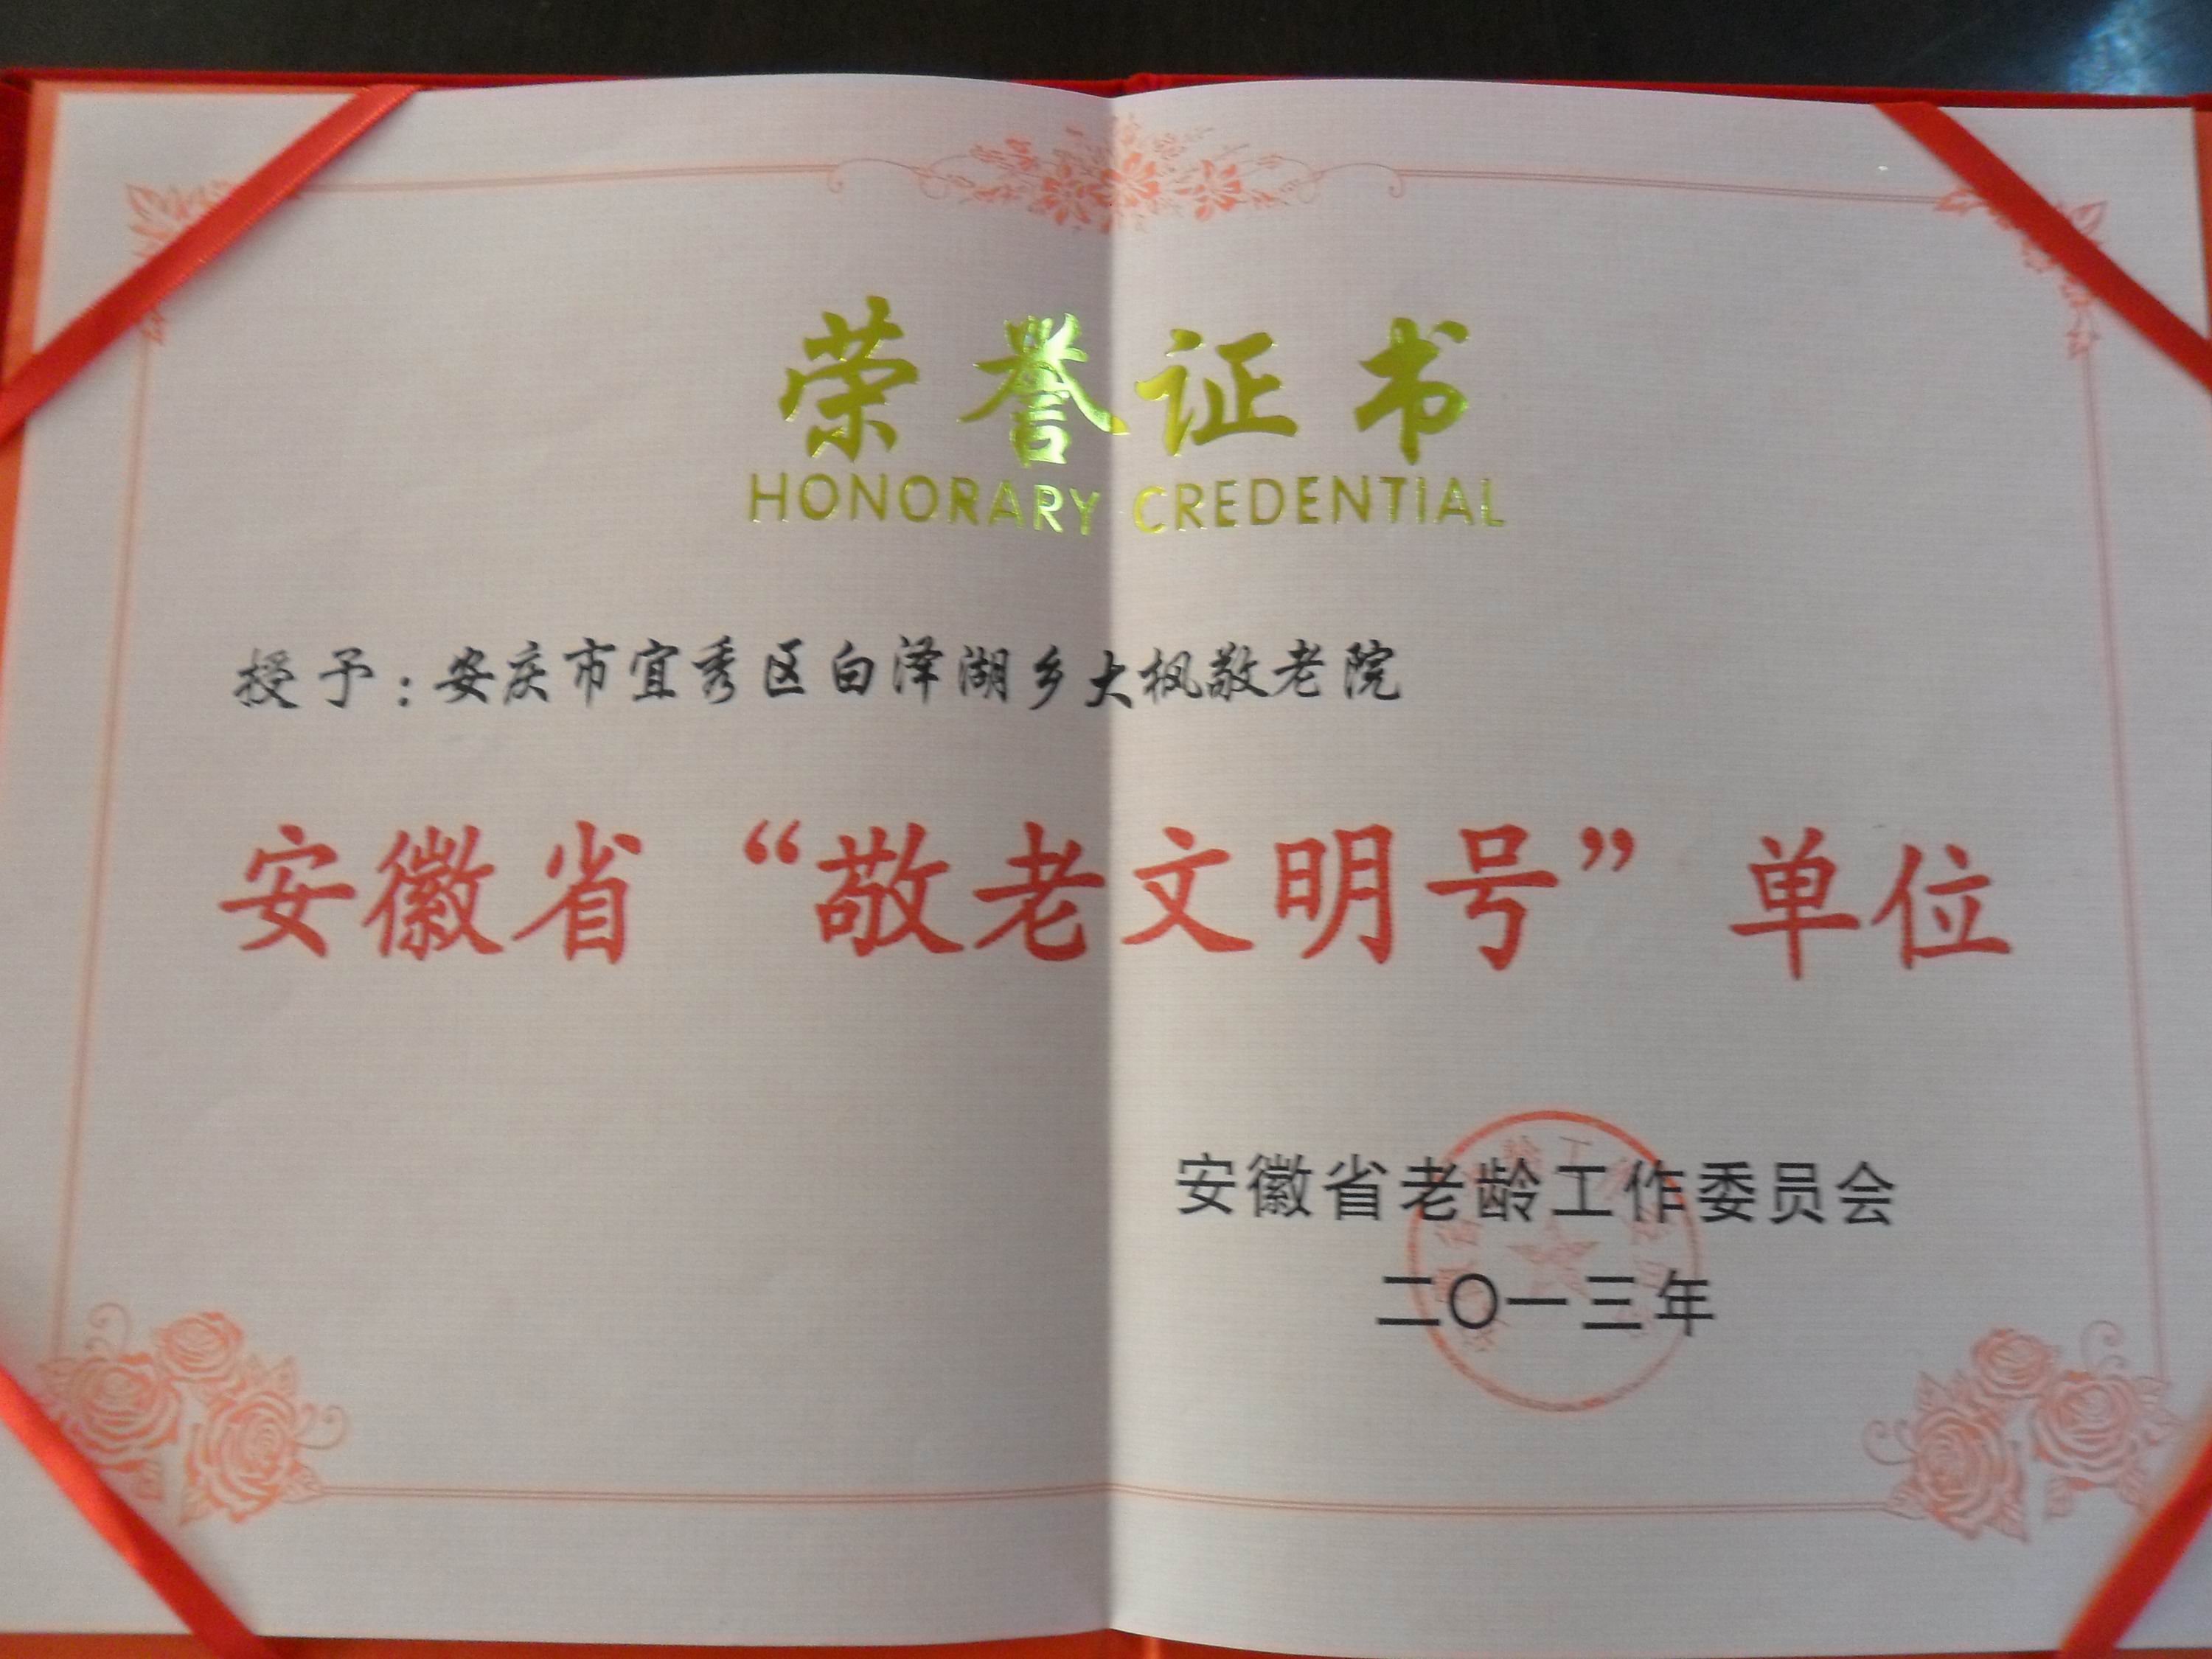 荣誉证书
HONORARY CREDENTIAL
授予：安庆市宜秀区白泽湖乡大枫敬老院
安徽省“敬老文明号”单位
安徽省老龄工作委员会
二〇一三年